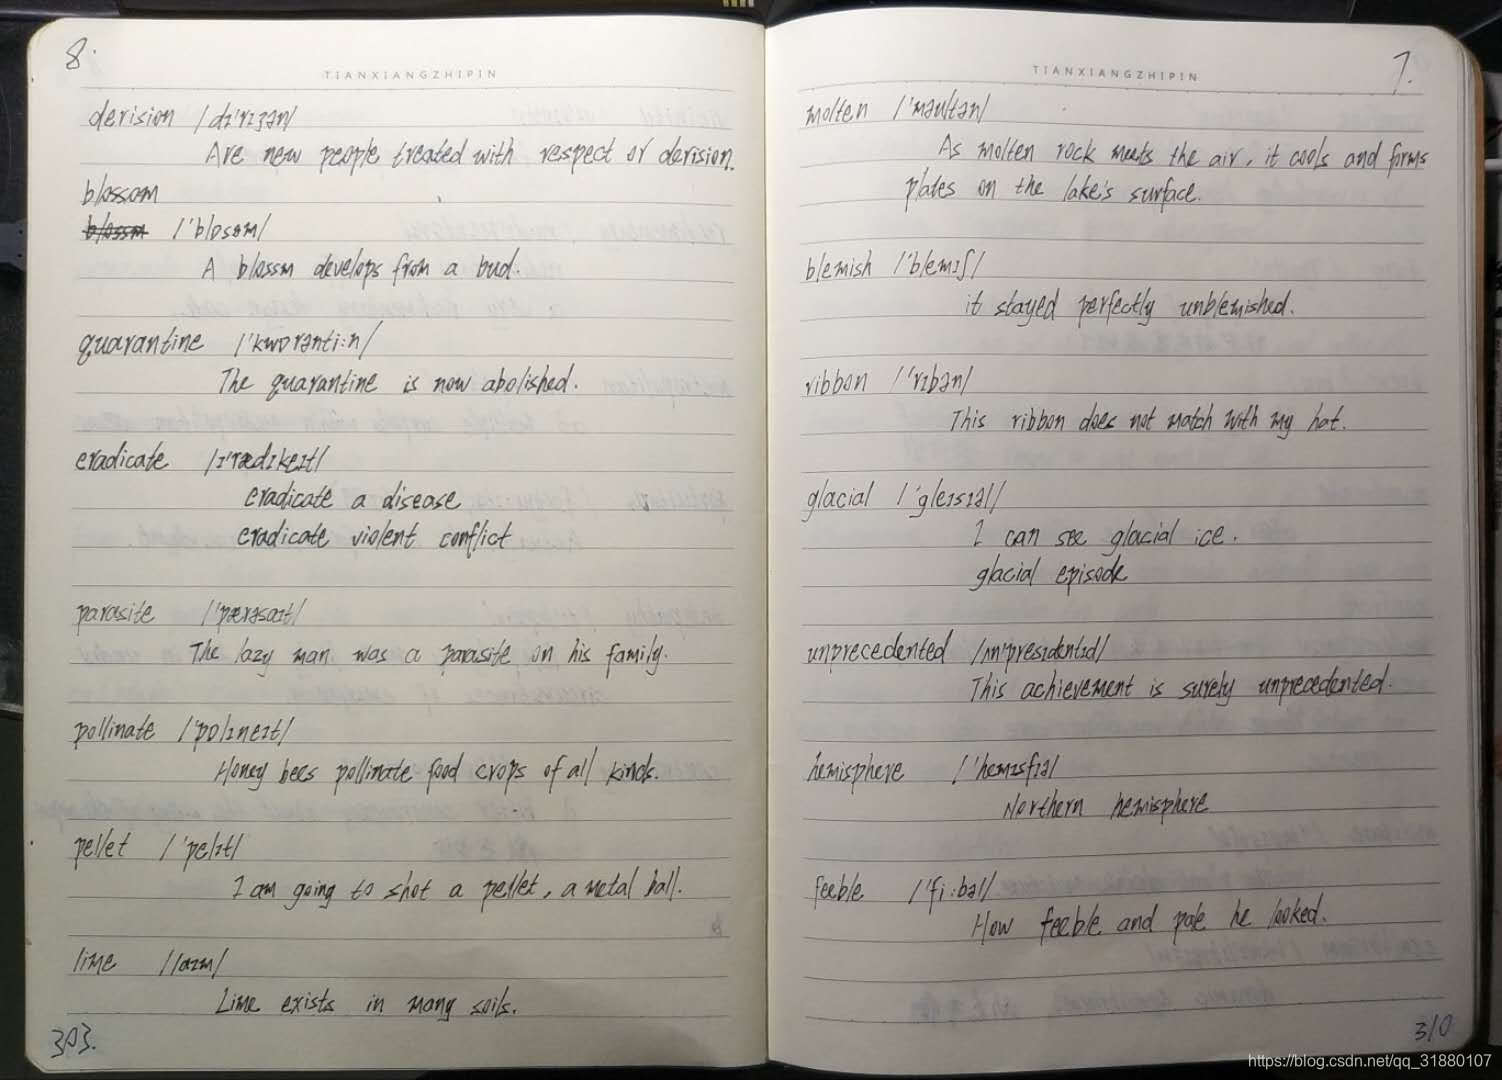 8.
TIANXIANGZHIPIN
derision /dɪ'rɪʒən/
Are new people treated with respect or derision.
blossom
blossm /'blɒsəm/
A blossm develops from a bud.
quarantine /'kwɒrənti:n/
The quarantine is now abolished.
eradicate /ɪ'rædɪkeɪt/
eradicate a disease
eradicate violent conflict
parasite /'pærəsaɪt/
The lazy man was a parasite on his family.
pollinate /'pɒlɪneɪt/
Honey bees pollinate food crops of all kinds.
pellet /'pelɪt/
I am going to shot a pellet, a metal ball.
lime /laɪm/
Lime exists in many soils.
303.
TIANXIANGZHIPIN
7.
molten /'məʊltən/
As molten rock meets the air, it cools and forms
plates on the lake's surface.
blemish /'blemɪʃ/
it stayed perfectly unblemished.
ribbon /'rɪbən/
This ribbon does not match with my hat.
glacial /'gleɪsɪəl/
I can see glacial ice.
glacial episode
unprecedented /ʌn'presɪdentɪd/
This achievement is surely unprecedented.
hemisphere /'hemɪsfɪə/
Northern hemisphere
feeble /'fi:bəl/
How feeble and pale he looked.
310
https://blog.csdn.net/qq_31880107